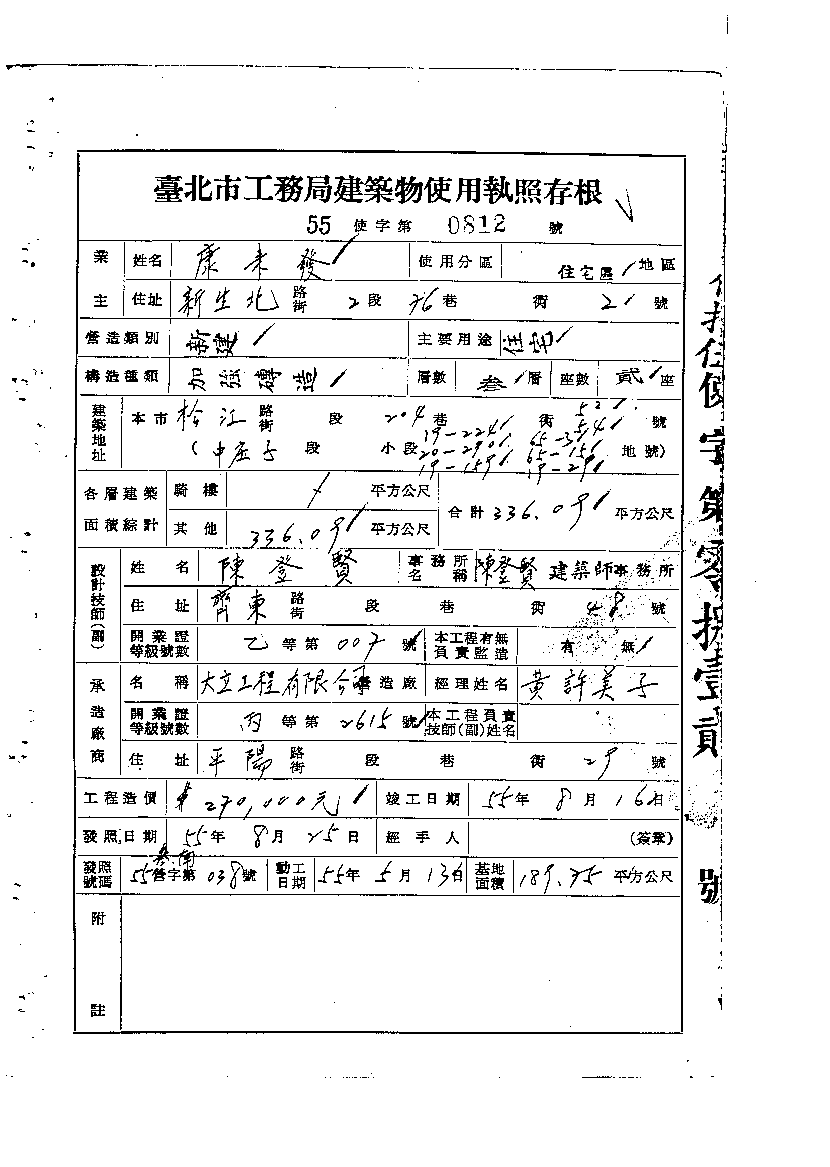 臺北市工務局建築物使用執照存根
55 使字第 0812 號
業主 姓名 康未發 使用分區 住宅區 地區
住址 新生北 路街 2段 76巷 衖 21號
營造類別 新建 主要用途 住宅
構造種類 加強磚造 層數 叁層 座數 貳座
建築地址 本市 松江 路街 段 204巷 衖 號
(中庄子段 小段 地號)
19-224 65-3
20-290 65-15
19-159 19-29
各層建築面積綜計 騎樓 平方公尺 合計 336.09 平方公尺
其他 336.09 平方公尺
設計技師(副) 姓名 陳登賢 事務所名稱 陳登賢 建築師事務所
住址 齊東 路街 段 巷 衖 48號
開業證等級號數 乙等第 007 號 本工程有無負責監造 有 無
承造廠商 名稱 大立工程有限公司 營造廠 經理姓名 黃許美子
開業證等級號數 丙等第 2615 號 本工程負責技師(副)姓名
住址 平陽 路街 段 巷 衖 29 號
工程造價 $270,000元 竣工日期 55年 8月 16日
發照日期 55年 8月 25日 經手人 (簽章)
發照號碼 55營字第 038號 動工日期 55年 5月 13日 基地面積 189.75 平方公尺
附註
使字第零捌壹貳號